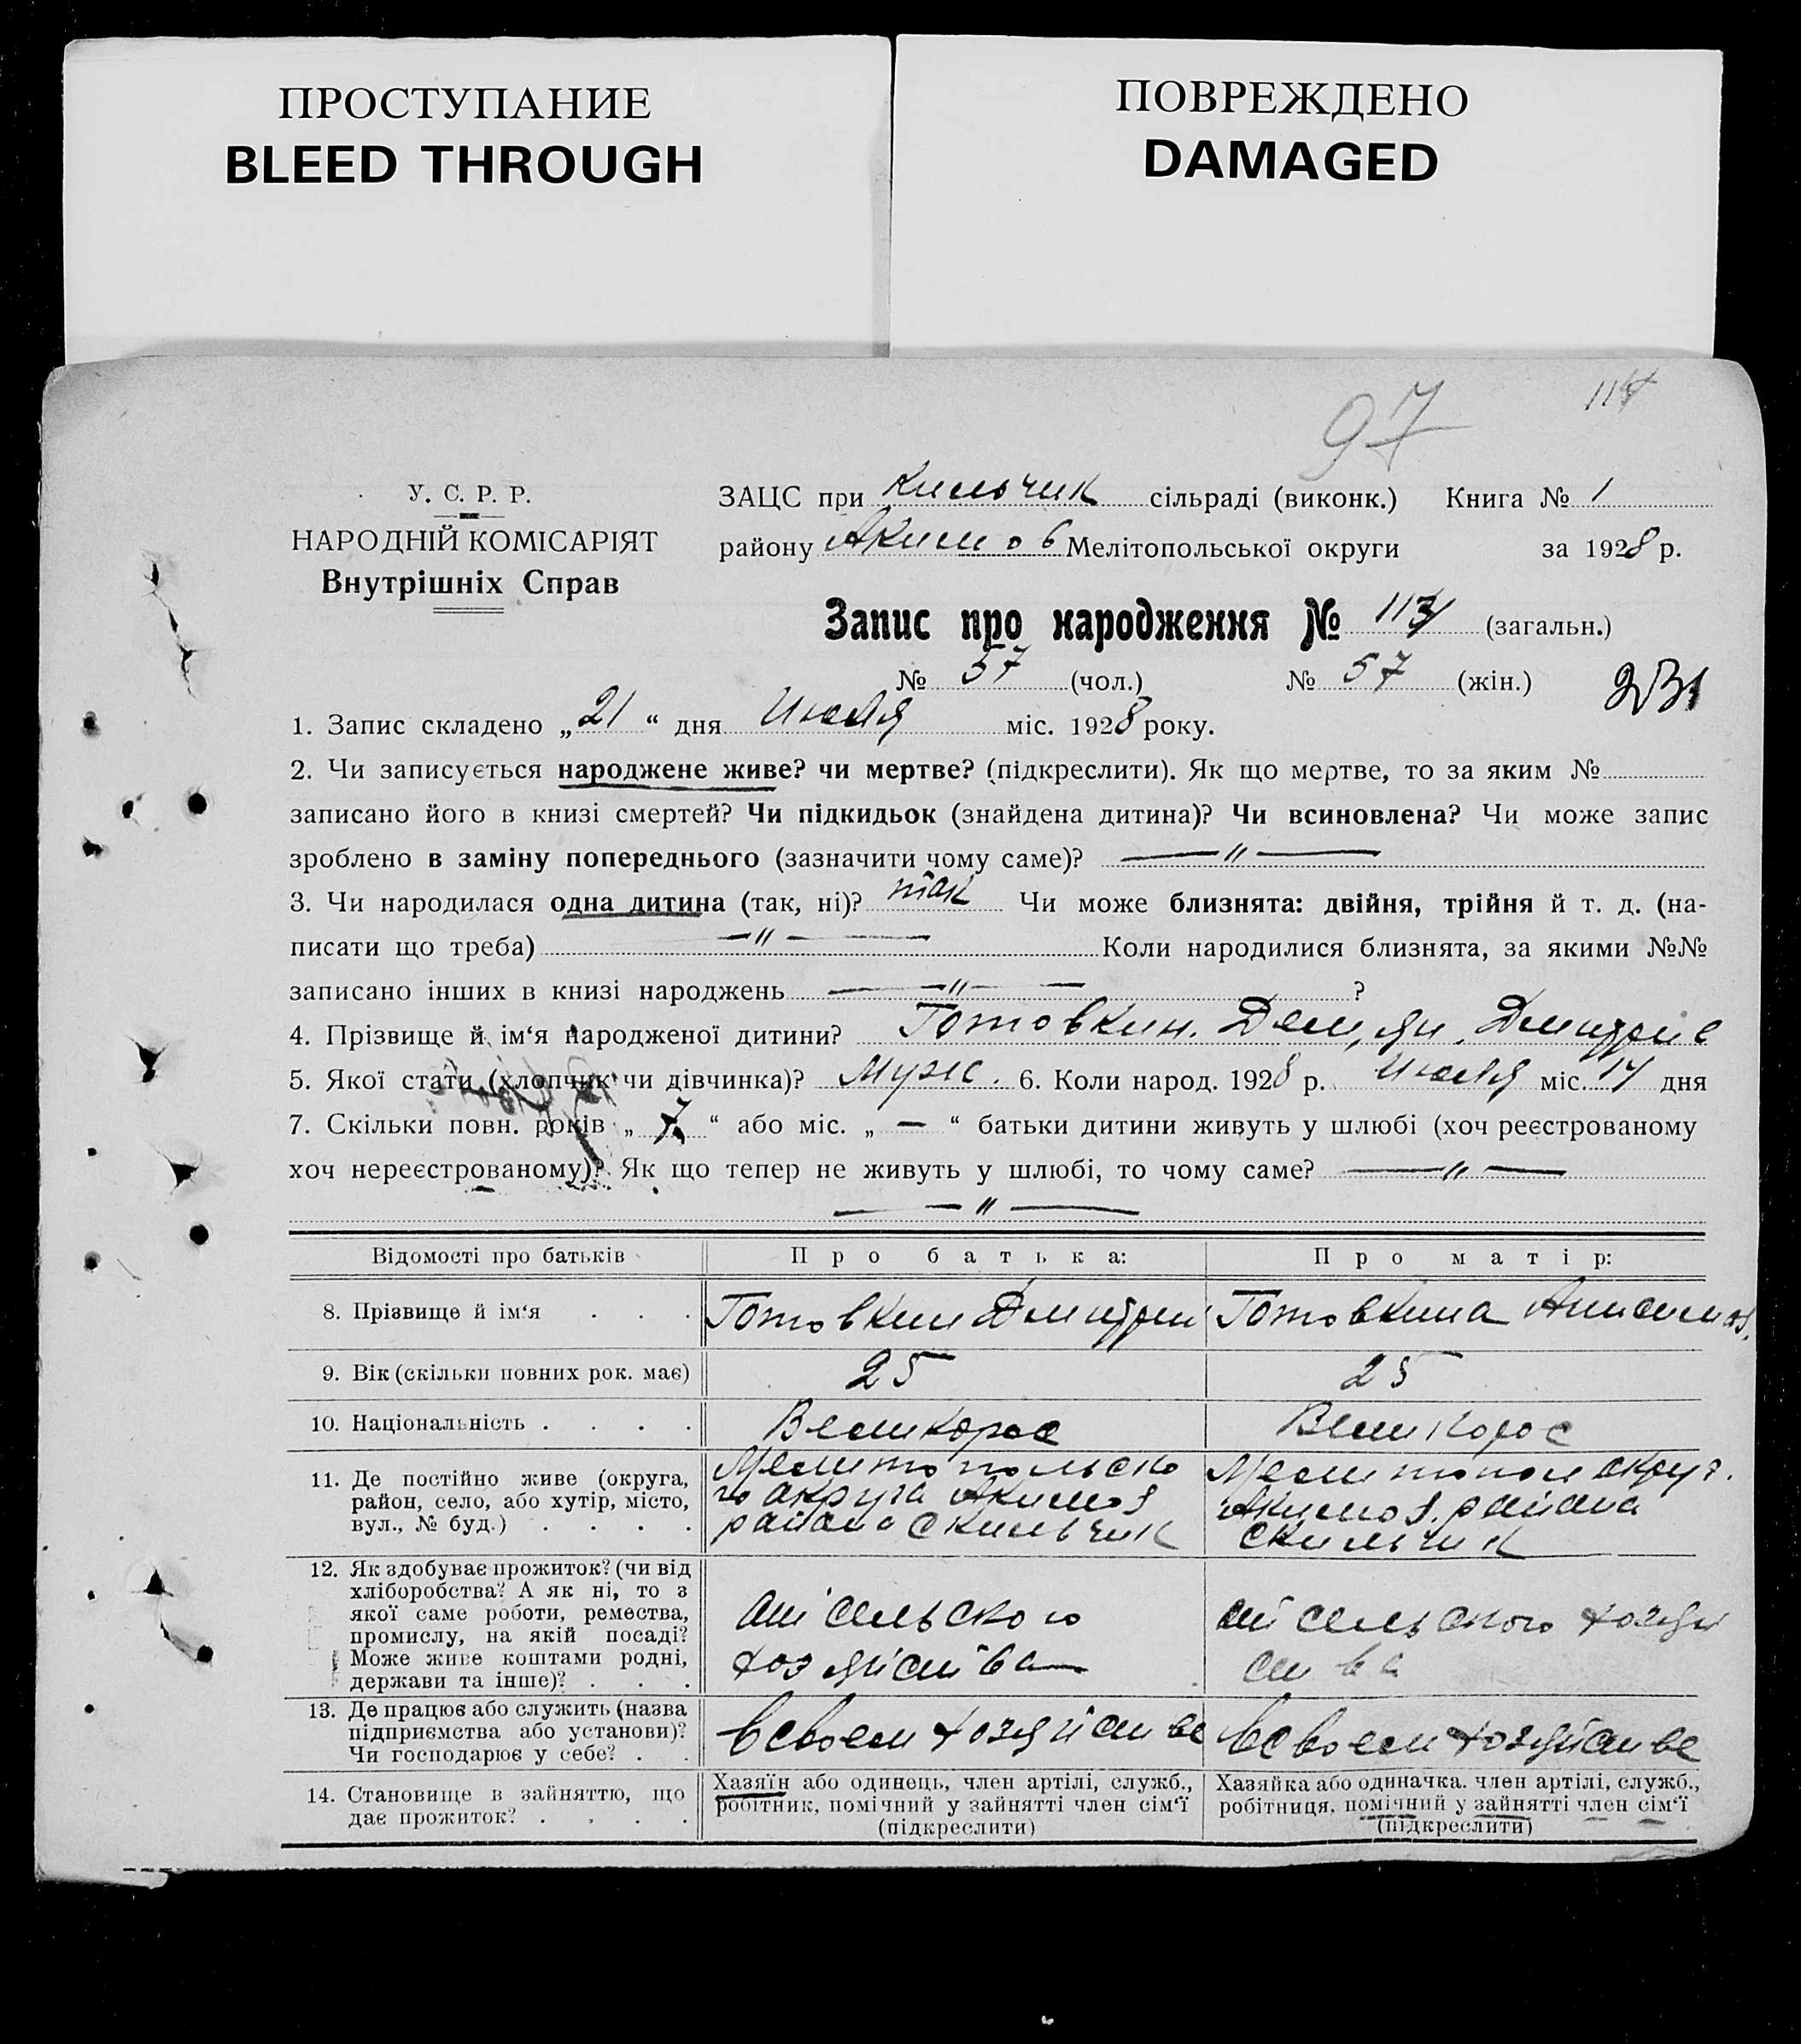 ПРОСТУПАНИЕ
BLEED THROUGH
ПОВРЕЖДЕНО
DAMAGED
97
У. С. Р. Р.
НАРОДНІЙ КОМІСАРІЯТ
Внутрішніх Справ
ЗАЦС при Кильчик сільраді (виконк.) Книга № 1
району Акимов Мелітопольської округи за 1928 р.
Запис про народження № (загальн.)
№ 57 (чол.) № 57 (жін.)
231
1. Запис складено „21“ дня Июля міс. 1928 року.
2. Чи записується народжене живе? чи мертве? (підкреслити). Як що мертве, то за яким №
записано його в книзі смертей? Чи підкидьок (знайдена дитина)? Чи всиновлена? Чи може запис
зроблено в заміну попереднього (зазначити чому саме)? — " —
3. Чи народилася одна дитина (так, ні)? так Чи може близнята: двійня, трійня й т. д. (на-
писати що треба) — " — Коли народилися близнята, за якими №№
записано інших в книзі народжень — " — ?
4. Прізвище й ім‘я народженої дитини? Готовкин. Демян. Дмитрие
5. Якої стати (хлопчик чи дівчинка)? Мужс. 6. Коли народ. 1928 р. Июля міс. 14 дня
7. Скільки повн. років „7“ або міс. „—“ батьки дитини живуть у шлюбі (хоч реєстрованому
хоч нереєстрованому)? Як що тепер не живуть у шлюбі, то чому саме? — " —
— " —
Відомості про батьків Про батька: Про матір:
8. Прізвище й ім‘я . . . Готовкин Дмитрий Готовкина
9. Вік (скільки повних рок. має) 25 25
10. Національність . . . . Великорос Великорос
11. Де постійно живе (округа, район, село, або хутір, місто, вул., № буд.) . . . .
Мелитопольско
го округа Акимов
района С Кильчик
Мелитопол округ.
Акимов. района
С Кильчик
12. Як здобуває прожиток? (чи від
хліборобства? А як ні, то з
якої саме роботи, ремества,
промислу, на якій посаді?
Може живе коштами родні,
держави та інше)? . . .
от сельского
хозяйства
от сельского хозяй
ства
13. Де працює або служить (назва
підприємства або установи)?
Чи господарює у себе? . .
В своем хозяйстве
В своем хозяйстве
14. Становище в зайняттю, що
дає прожиток? . . . .
Хазяїн або одинець, член артілі, служб.,
робітник, помічний у зайнятті член сім‘ї
(підкреслити)
Хазяйка або одиначка. член артілі, служб.,
робітниця, помічний у зайнятті член сім‘ї
(підкреслити)